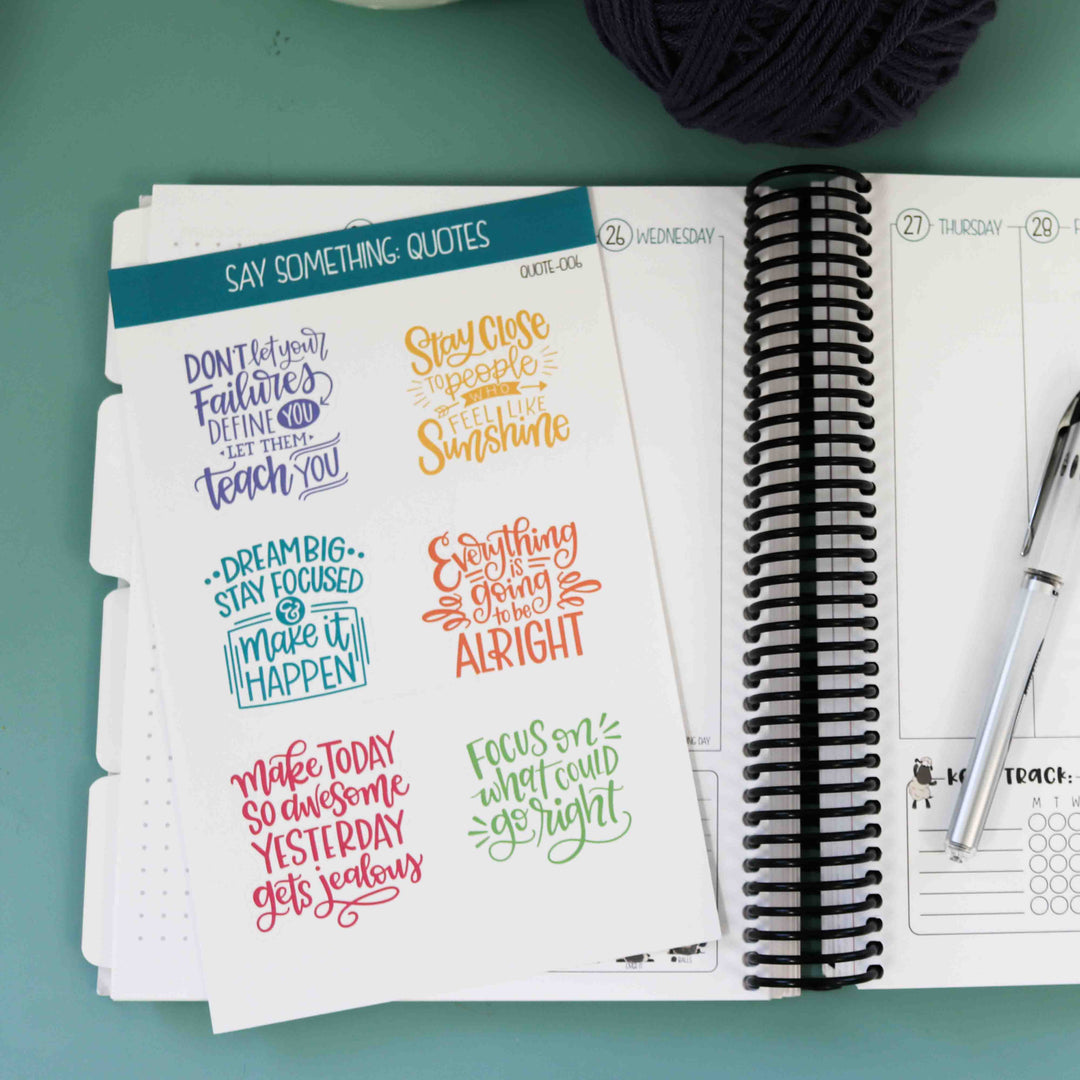 SAY SOMETHING: QUOTES
QUOTE-006
DON'T let your
Failures
DEFINE YOU
LET THEM
teach YOU
Stay CLOSE
TO people
WHO
FEEL LIKE
Sunshine
DREAM BIG
STAY FOCUSED
&
make it
HAPPEN
Everything
is
going
to be
ALRIGHT
make TODAY
so awesome
YESTERDAY
gets jealous
FOCUS on
what COULD
go right
26 WEDNESDAY
27 THURSDAY
28 F
NG DAY
TRACK:
M T W
BALLS